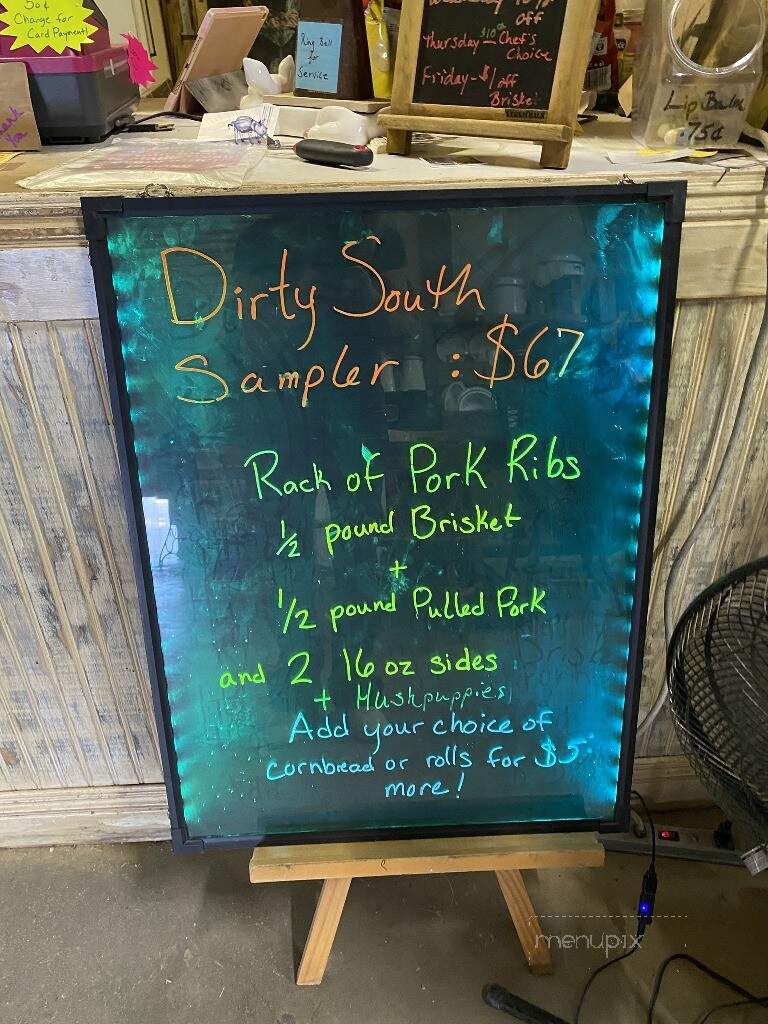 50¢
Charge for
Card Payment!
Ring Bell
for
Service
off
Thursday - $10 Chef's
Choice
Friday - $1 off
Brisket
Lip Balm
.75¢
You
Dirty South
Sampler : $67
Rack of Pork Ribs
1/2 pound Brisket
+
1/2 pound Pulled Pork
and 2 16 oz sides
+ Hushpuppies
Add your choice of
cornbread or rolls for $5
more!
menupix